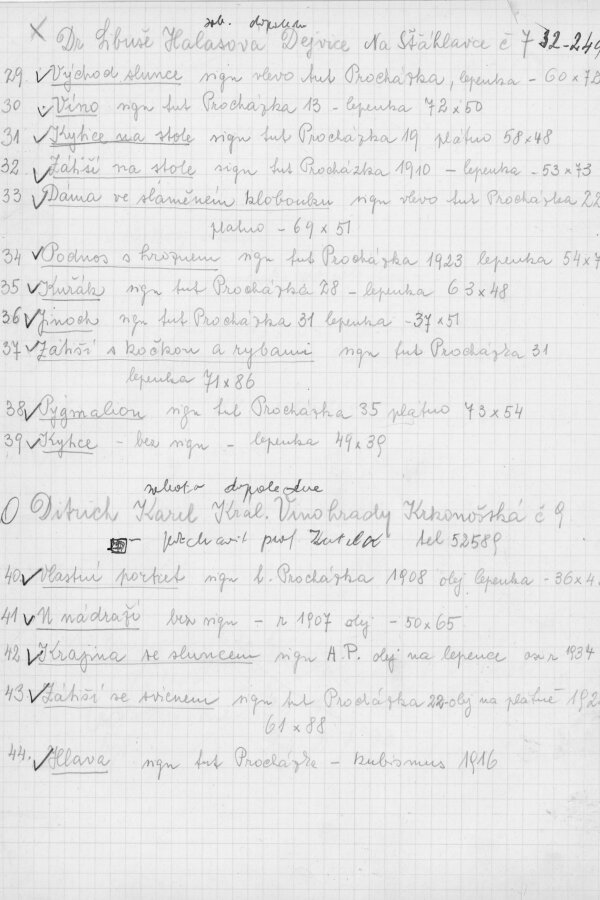 sob. dopolem
X Dr Libuše Halasova Dejvice Na Šťáhlavce č 7 32-249
29 ✓ Východ slunce sign vlevo tut Procházka, lepenka - 60 x 72
30 ✓ Víno sign tut Procházka 13 - lepenka 72 x 50
31 ✓ Kytice na stole sign tut Procházka 19 plátno 58 x 48
32. ✓ Zátiší na stole sign tut Procházka 1910 - lepenka - 53 x 73
33 ✓ Dáma ve slaměném klobouku sign vlevo tut Procházka 22
platno - 69 x 51
34 ✓ Podnos s hroznem sign tut Procházka 1923 lepenka 54 x 7
35 ✓ Kuřák sign tut Procházka 28 - lepenka 63 x 48
36 ✓ Jinoch sign tut Procházka 31 lepenka - 37 x 51
37 ✓ Zátiší s kočkou a rybami sign tut Procházka 31
lepenka 71 x 86
38 ✓ Pygmalion sign tut Procházka 35 plátno 73 x 54
39 ✓ Kytice - bez sign - lepenka 49 x 39
sobota dopoledne
O Ditrich Karel Král. Vinohrady Krkonošská č 9
prof tel 52589
40 ✓ Vlastní portret sign t. Procházka 1908 olej lepenka - 36 x 4
41 ✓ U nádraží bez sign - r 1907 olej - 50 x 65
42 ✓ Krajina se sluncem sign A.P. olej na lepence r 1934
43 ✓ Zátiší se svícnem sign tut Procházka 22 olej na plátně 192
61 x 88
44. ✓ Hlava sign tut Procházka - kubismus 1916